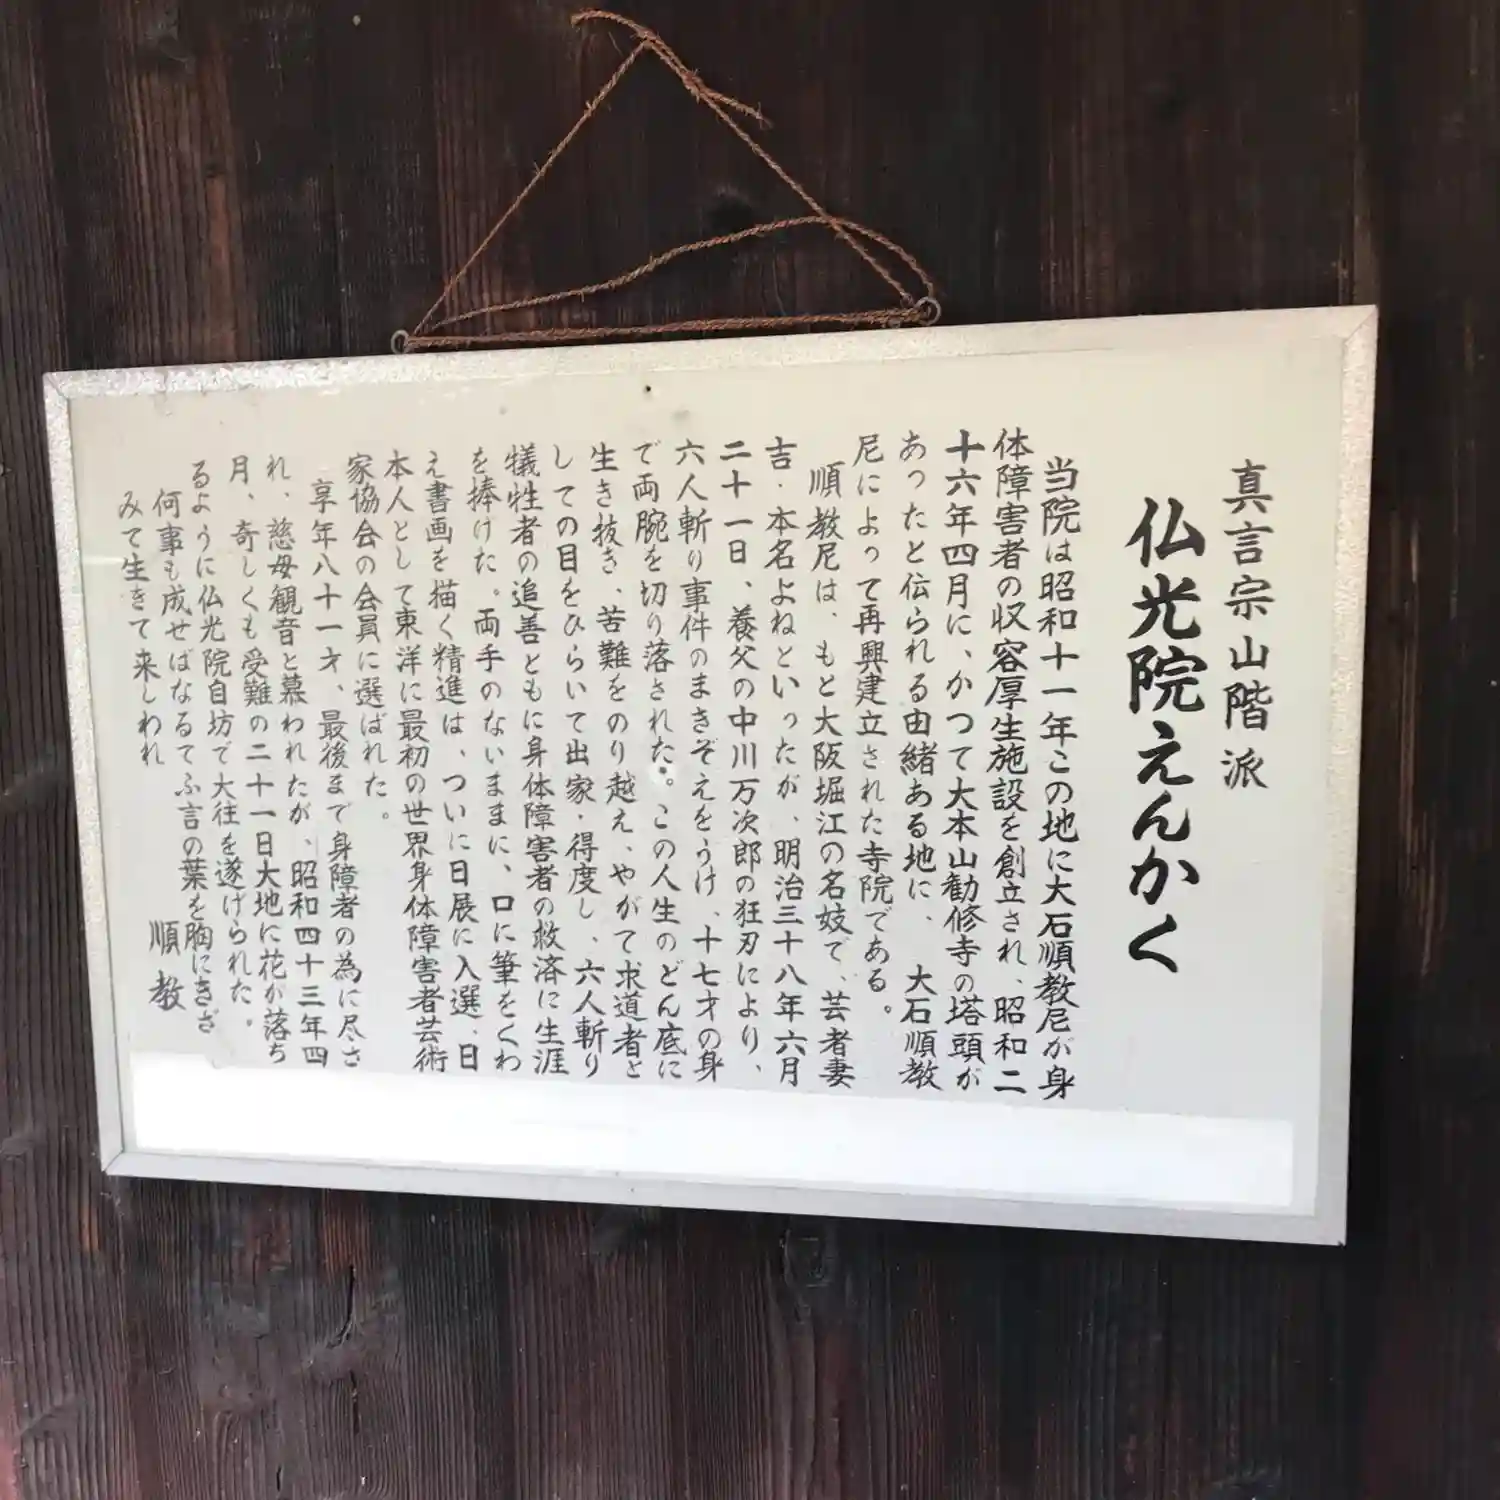 真言宗山階派
仏光院えんかく
当院は昭和十一年この地に大石順教尼が身
体障害者の収容厚生施設を創立され、昭和二
十六年四月に、かつて大本山勧修寺の塔頭が
あったと伝られる由緒ある地に、大石順教
尼によって再興建立された寺院である。
順教尼は、もと大阪堀江の名妓で、芸者妻
吉・本名よねといったが、明治三十八年六月
二十一日、養父の中川万次郎の狂刃により、
六人斬り事件のまきぞえをうけ、十七才の身
で両腕を切り落された。この人生のどん底に
生き抜き、苦難をのり越え、やがて求道者と
しての目をひらいて出家・得度し、六人斬り
犠牲者の追善ともに身体障害者の救済に生涯
を捧けた。両手のないままに、口に筆をくわ
え書画を描く精進は、ついに日展に入選、日
本人として東洋に最初の世界身体障害者芸術
家協会の会員に選ばれた。
享年八十一才、最後まで身障者の為に尽さ
れ、慈母観音と慕われたが、昭和四十三年四
月、奇しくも受難の二十一日大地に花が落ち
るように仏光院自坊で大往を遂げられた。
何事も成せばなるてふ言の葉を胸にきざ
みて生きて来しわれ
順教